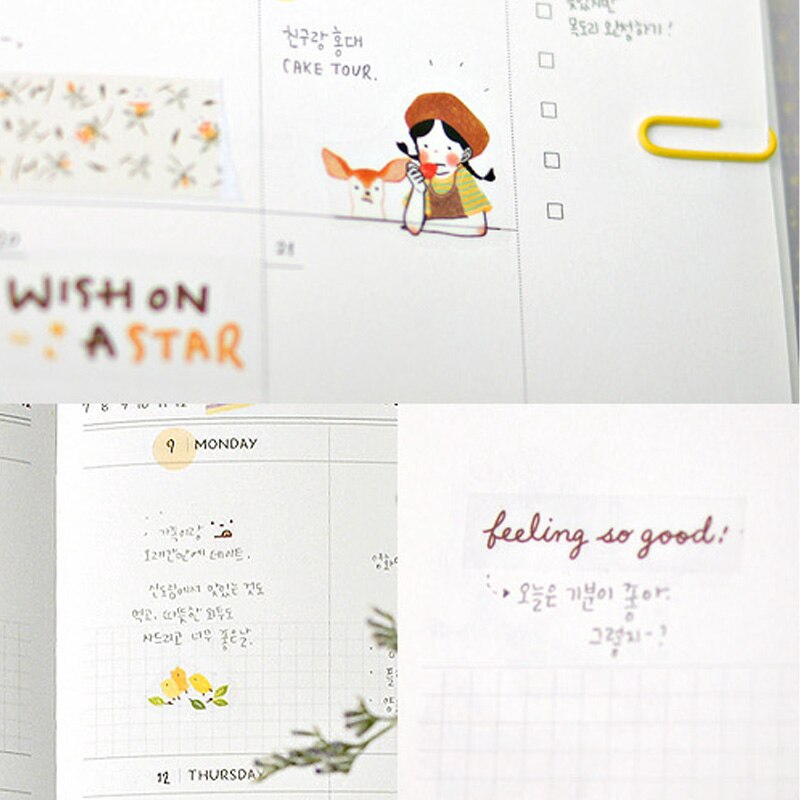 친구랑 홍대
CAKE TOUR.
목도리 완성하기!
20
21
WISH ON
A STAR
9 MONDAY
가족이랑
오래간만에 데이트.
신도림에서 맛있는 것도
먹고, 따뜻한 외투도
사드리고 너무 좋은날.
12 THURSDAY
feeling so good!
오늘은 기분이 좋아.
그렇지~?